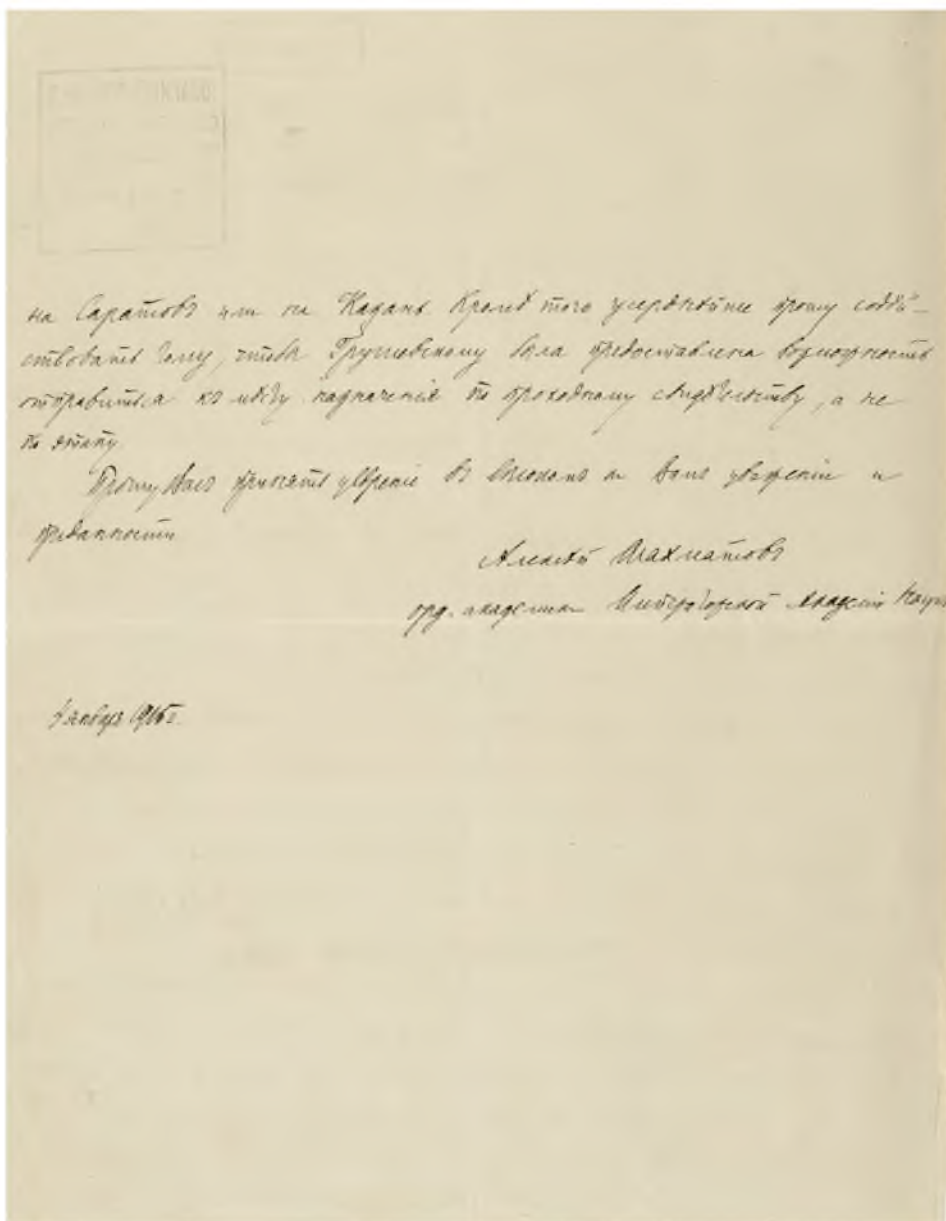 на Саратовъ или на Казань. Кромѣ того усерднѣйше прошу содѣй-
ствовать тому, чтобы Грушевскому была предоставлена возможность
отправиться къ мѣсту назначенія по проходному свидѣтельству, а не
по этапу.
Прошу Васъ принять увѣреніе въ высокомъ къ Вамъ уваженіи и
преданности
Алексѣй Шахматовъ
орд. академикъ Императорской Академіи Наукъ
января 1915 г.